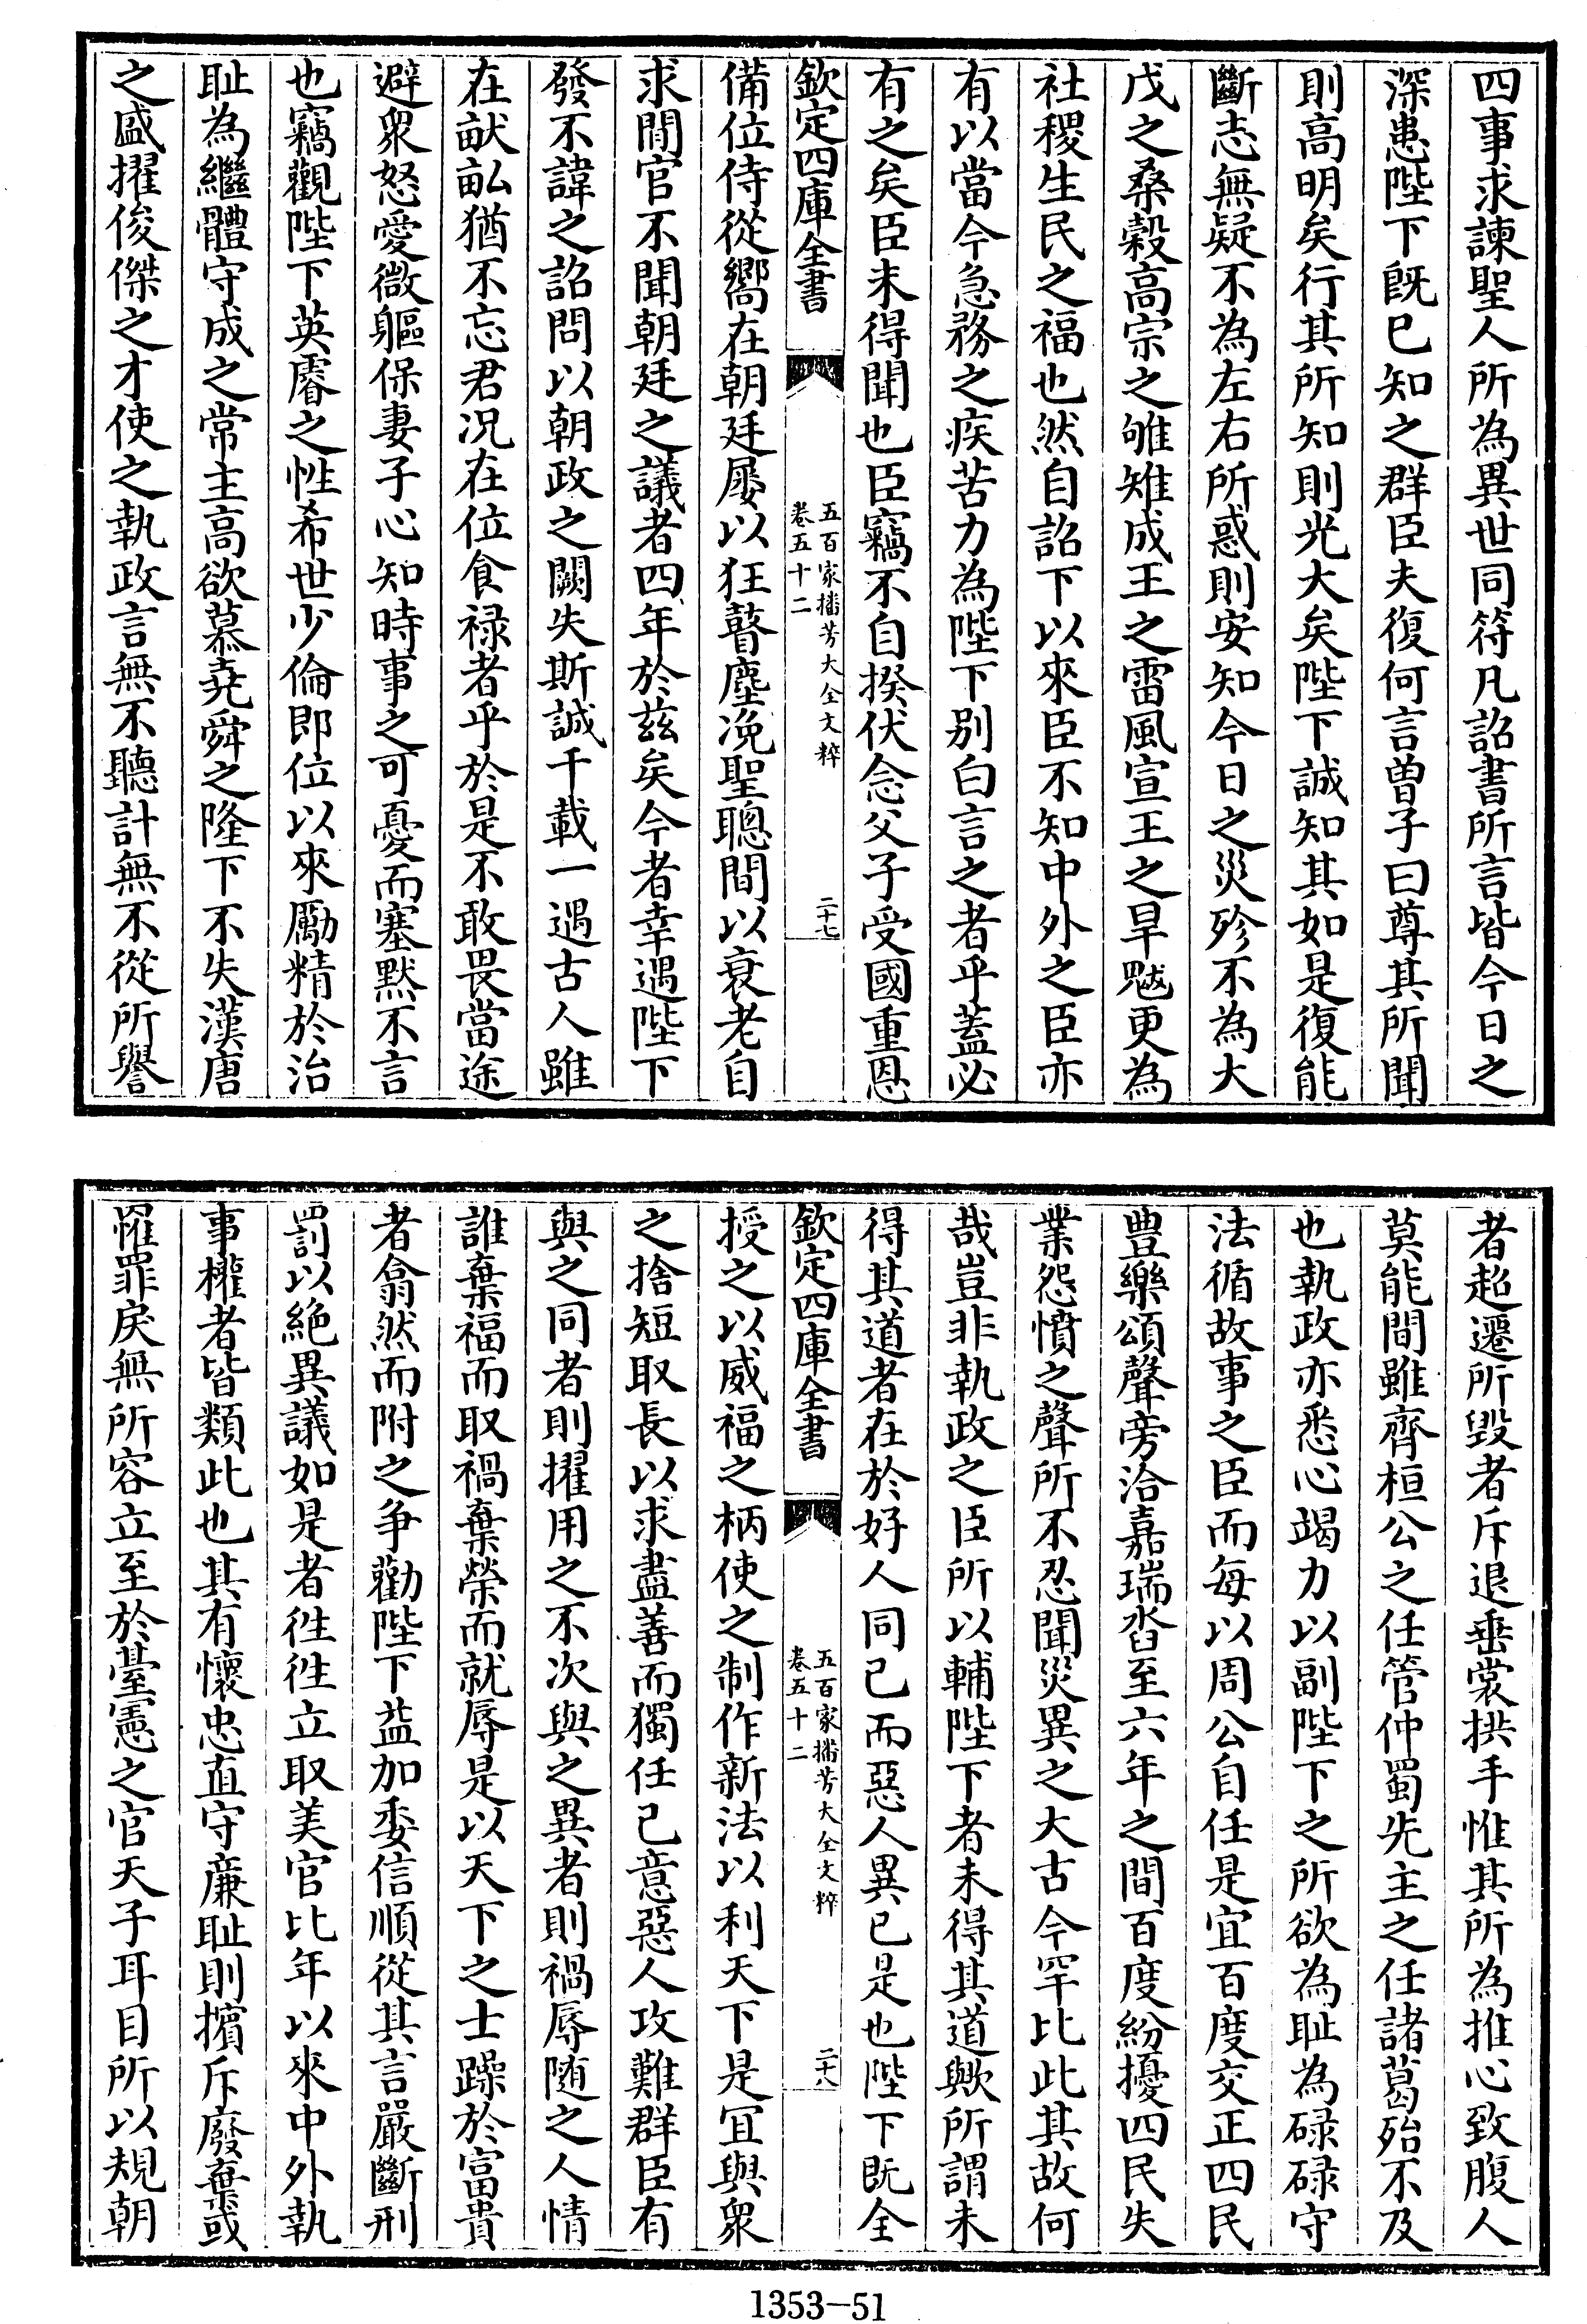 四事求諫聖人所為異世同符凡詔書所言皆今日之
深患陛下既已知之群臣夫復何言曽子曰尊其所聞
則高明矣行其所知則光大矣陛下誠知其如是復能
斷志無疑不為左右所惑則安知今日之災沴不為大
戊之桑榖高宗之雊雉成王之雷風宣王之旱魃更為
社稷生民之福也然自詔下以來臣不知中外之臣亦
有以當今急務之疾苦力為陛下别白言之者乎蓋必
有之矣臣未得聞也臣竊不自揆伏念父子受國重恩
欽定四庫全書
五百家播芳大全文粹
卷五十二
二十七
備位侍從嚮在朝廷屢以狂瞽塵浼聖聰間以衰老自
求閒官不聞朝廷之議者四年於兹矣今者幸遇陛下
發不諱之詔問以朝政之闕失斯誠千載一遇古人雖
在畎畝猶不忘君况在位食禄者乎於是不敢畏當途
避衆怒愛微軀保妻子心知時事之可憂而塞黙不言
也竊觀陛下英睿之性希世少倫即位以來勵精於治
耻為繼體守成之常主高欲慕堯舜之隆下不失漢唐
之盛擢俊傑之才使之執政言無不聽計無不從所譽
者超遷所毁者斥退垂裳拱手惟其所為推心致腹人
莫能間雖齊桓公之任管仲蜀先主之任諸葛殆不及
也執政亦悉心竭力以副陛下之所欲為耻為碌碌守
法循故事之臣而每以周公自任是宜百度交正四民
豊樂頌聲旁洽嘉瑞沓至六年之間百度紛擾四民失
業怨憤之聲所不忍聞災異之大古今罕比此其故何
哉豈非執政之臣所以輔陛下者未得其道歟所謂未
得其道者在於好人同己而惡人異己是也陛下既全
欽定四庫全書
五百家播芳大全文粹
卷五十二
二十八
授之以威福之柄使之制作新法以利天下是宜與衆
之捨短取長以求盡善而獨任己意惡人攻難群臣有
與之同者則擢用之不次與之異者則禍辱随之人情
誰棄福而取禍棄榮而就辱是以天下之士躁於富貴
者翕然而附之争勸陛下益加委信順從其言嚴斷刑
罰以絶異議如是者徃徃立取美官比年以來中外執
事權者皆類此也其有懷忠直守亷耻則擯斥廢棄或
罹罪戾無所容立至於臺憲之官天子耳目所以規朝
1353-51